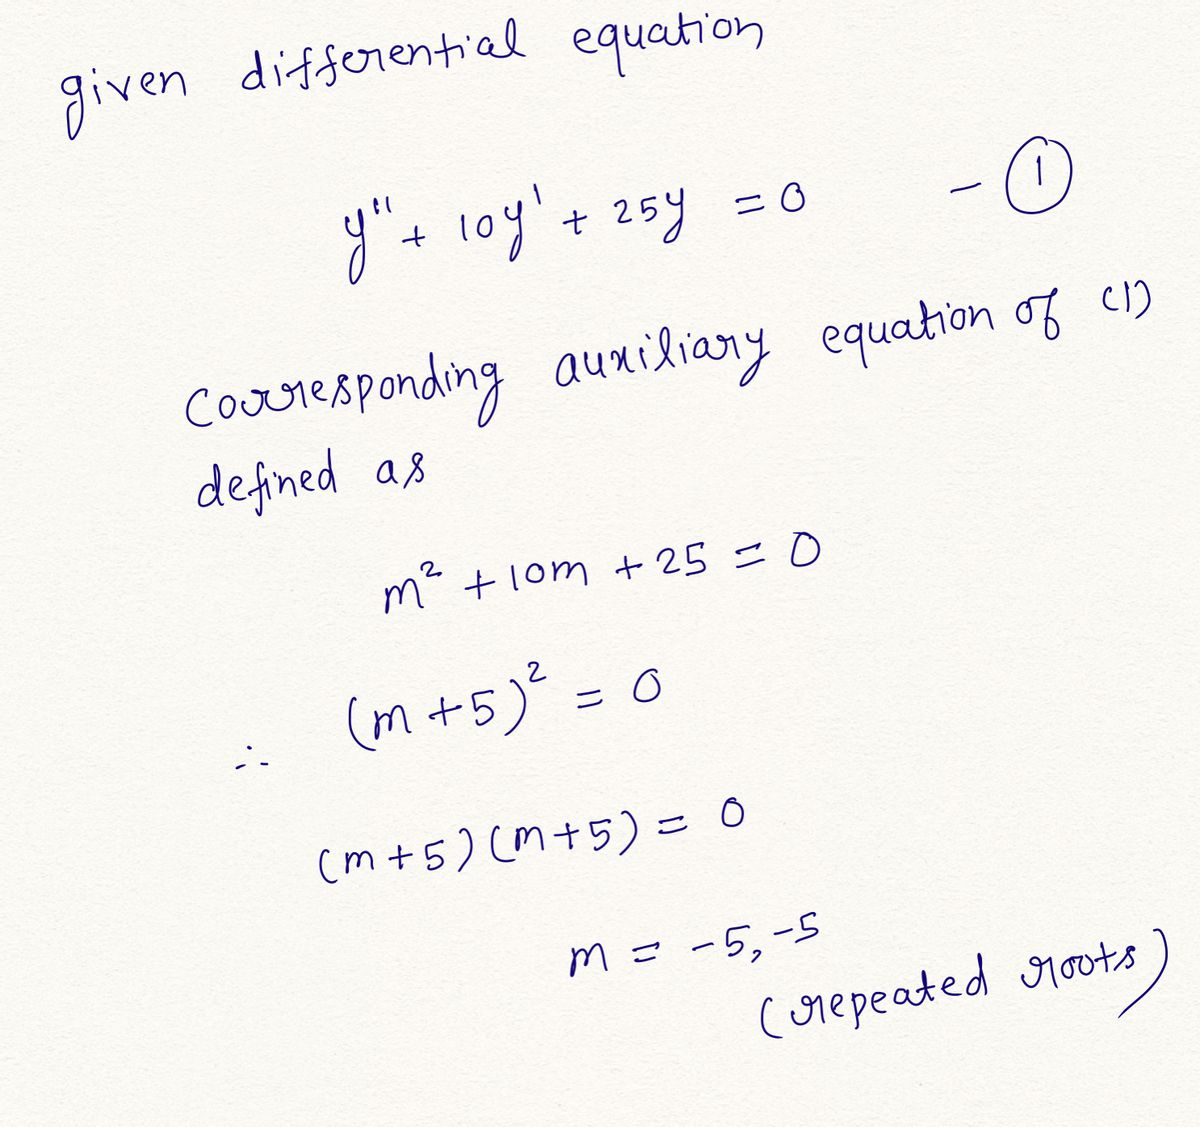 given differential equation
y'' + 10y' + 25y = 0 - ①
Corresponding auxiliary equation of (1)
defined as
m² + 10m + 25 = 0
∴ (m + 5)² = 0
(m + 5) (m + 5) = 0
m = -5, -5
(repeated roots)